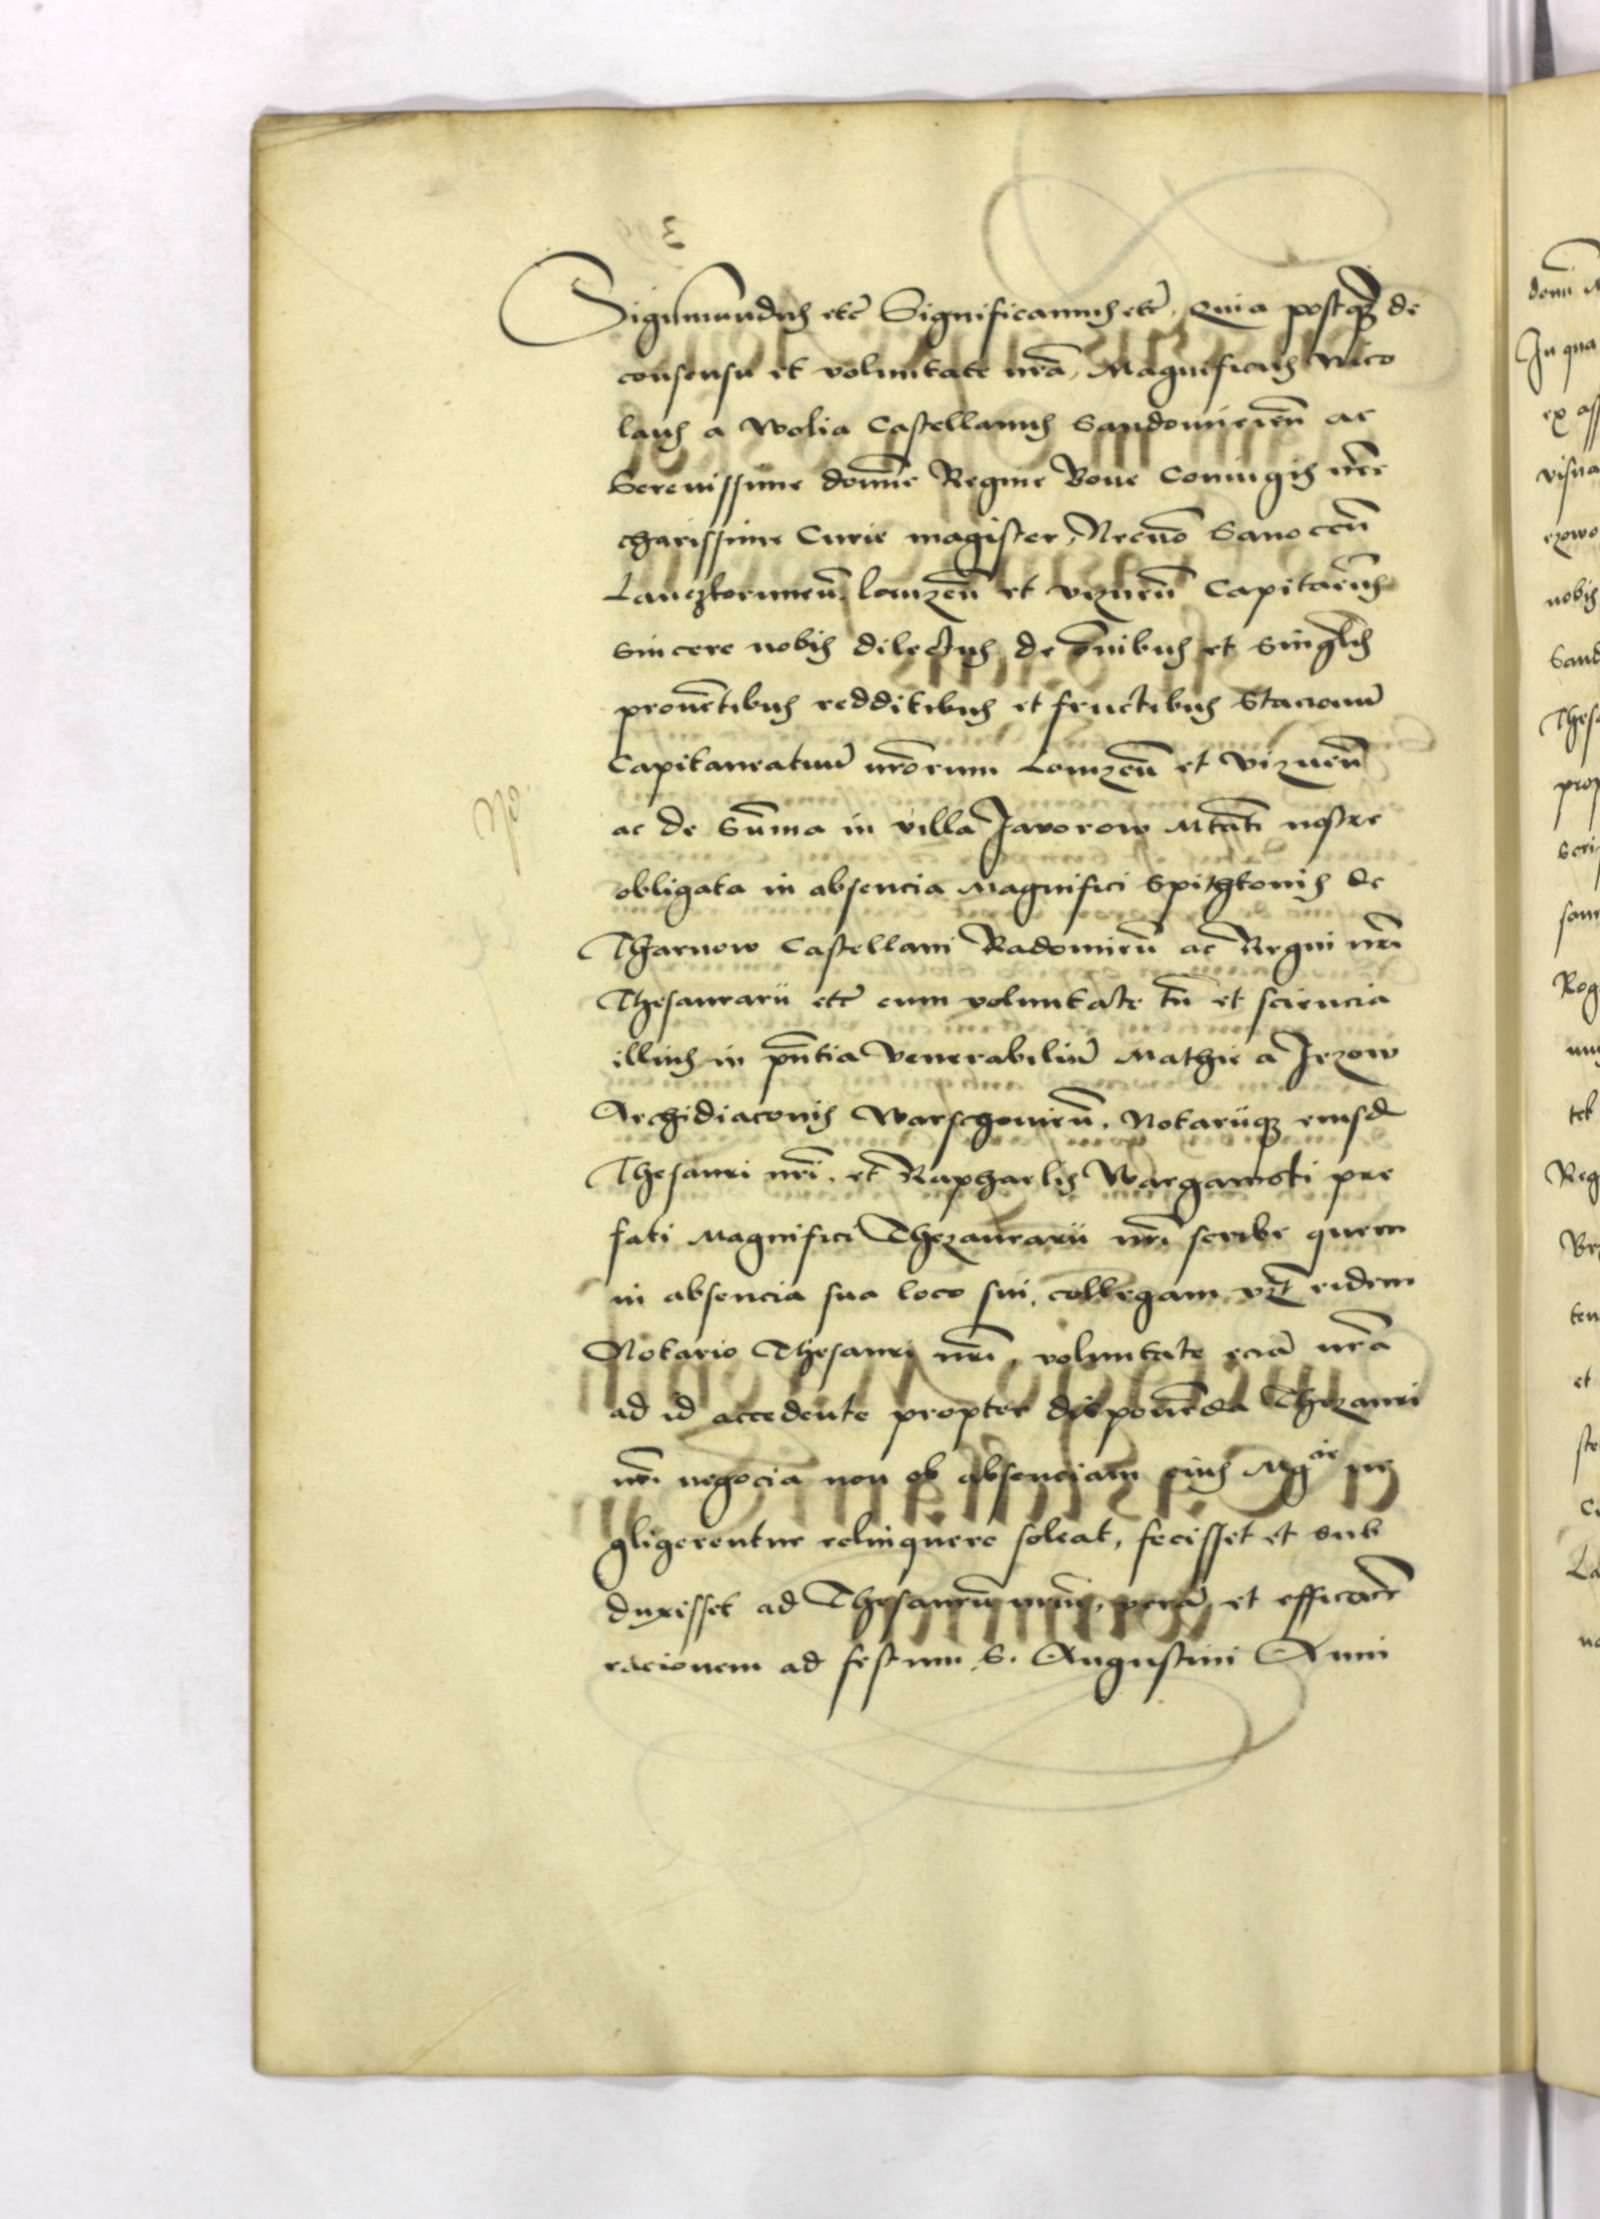 Sigismundus etc Significamus etc. Quia postq̃ de
consensu et voluntate nr̃a, Magnificus Nico
laus a Wolia Castellanus Sandomirieñ ac
Serenissime domine Regine Bone Coniugis nr̃e
charissime Curie magister, Necnõ Sanoceñ
Lanczkorunieñ, lomzeñ et vizneñ Capitaneus
sincere nobis dilectus de oĩbus et singulis
proventibus redditibus et fructibus Stacionũ
Capitaneatuũ nr̃orum Lomzeñ et Vizneñ
ac de Sum̃a in villa Javorow Mtati nostre
obligata in absencia Magnifici Spithkonis de
Tharnow Castellani Radomieñ ac Regni nr̃i
Thesaurarii etc cum voluntate tñ et sciencia
illius in pñtia venerabiliũ Mathie a Jezow
Archidiaconis Warschovieñ, Notariiq̃ eiusd
Thesauri nr̃i, et Raphaelis Wargawski pre
fati Magnifici Thezaurarii nr̃i scribe quem
in absencia sua loco sui, collegam vz̃ eidem
Notario Thesauri nr̃i, voluntate eciã nr̃a
ad id accedente propter disponẽda Thezauri
nr̃i negocia non ob absenciam eius Mgcie ne
gligerentur relinquere soleat, fecisset et sub
duxisset ad Thesaurũ nr̃m, verã et efficacẽ
racionem ad festum S. Augustini Anni